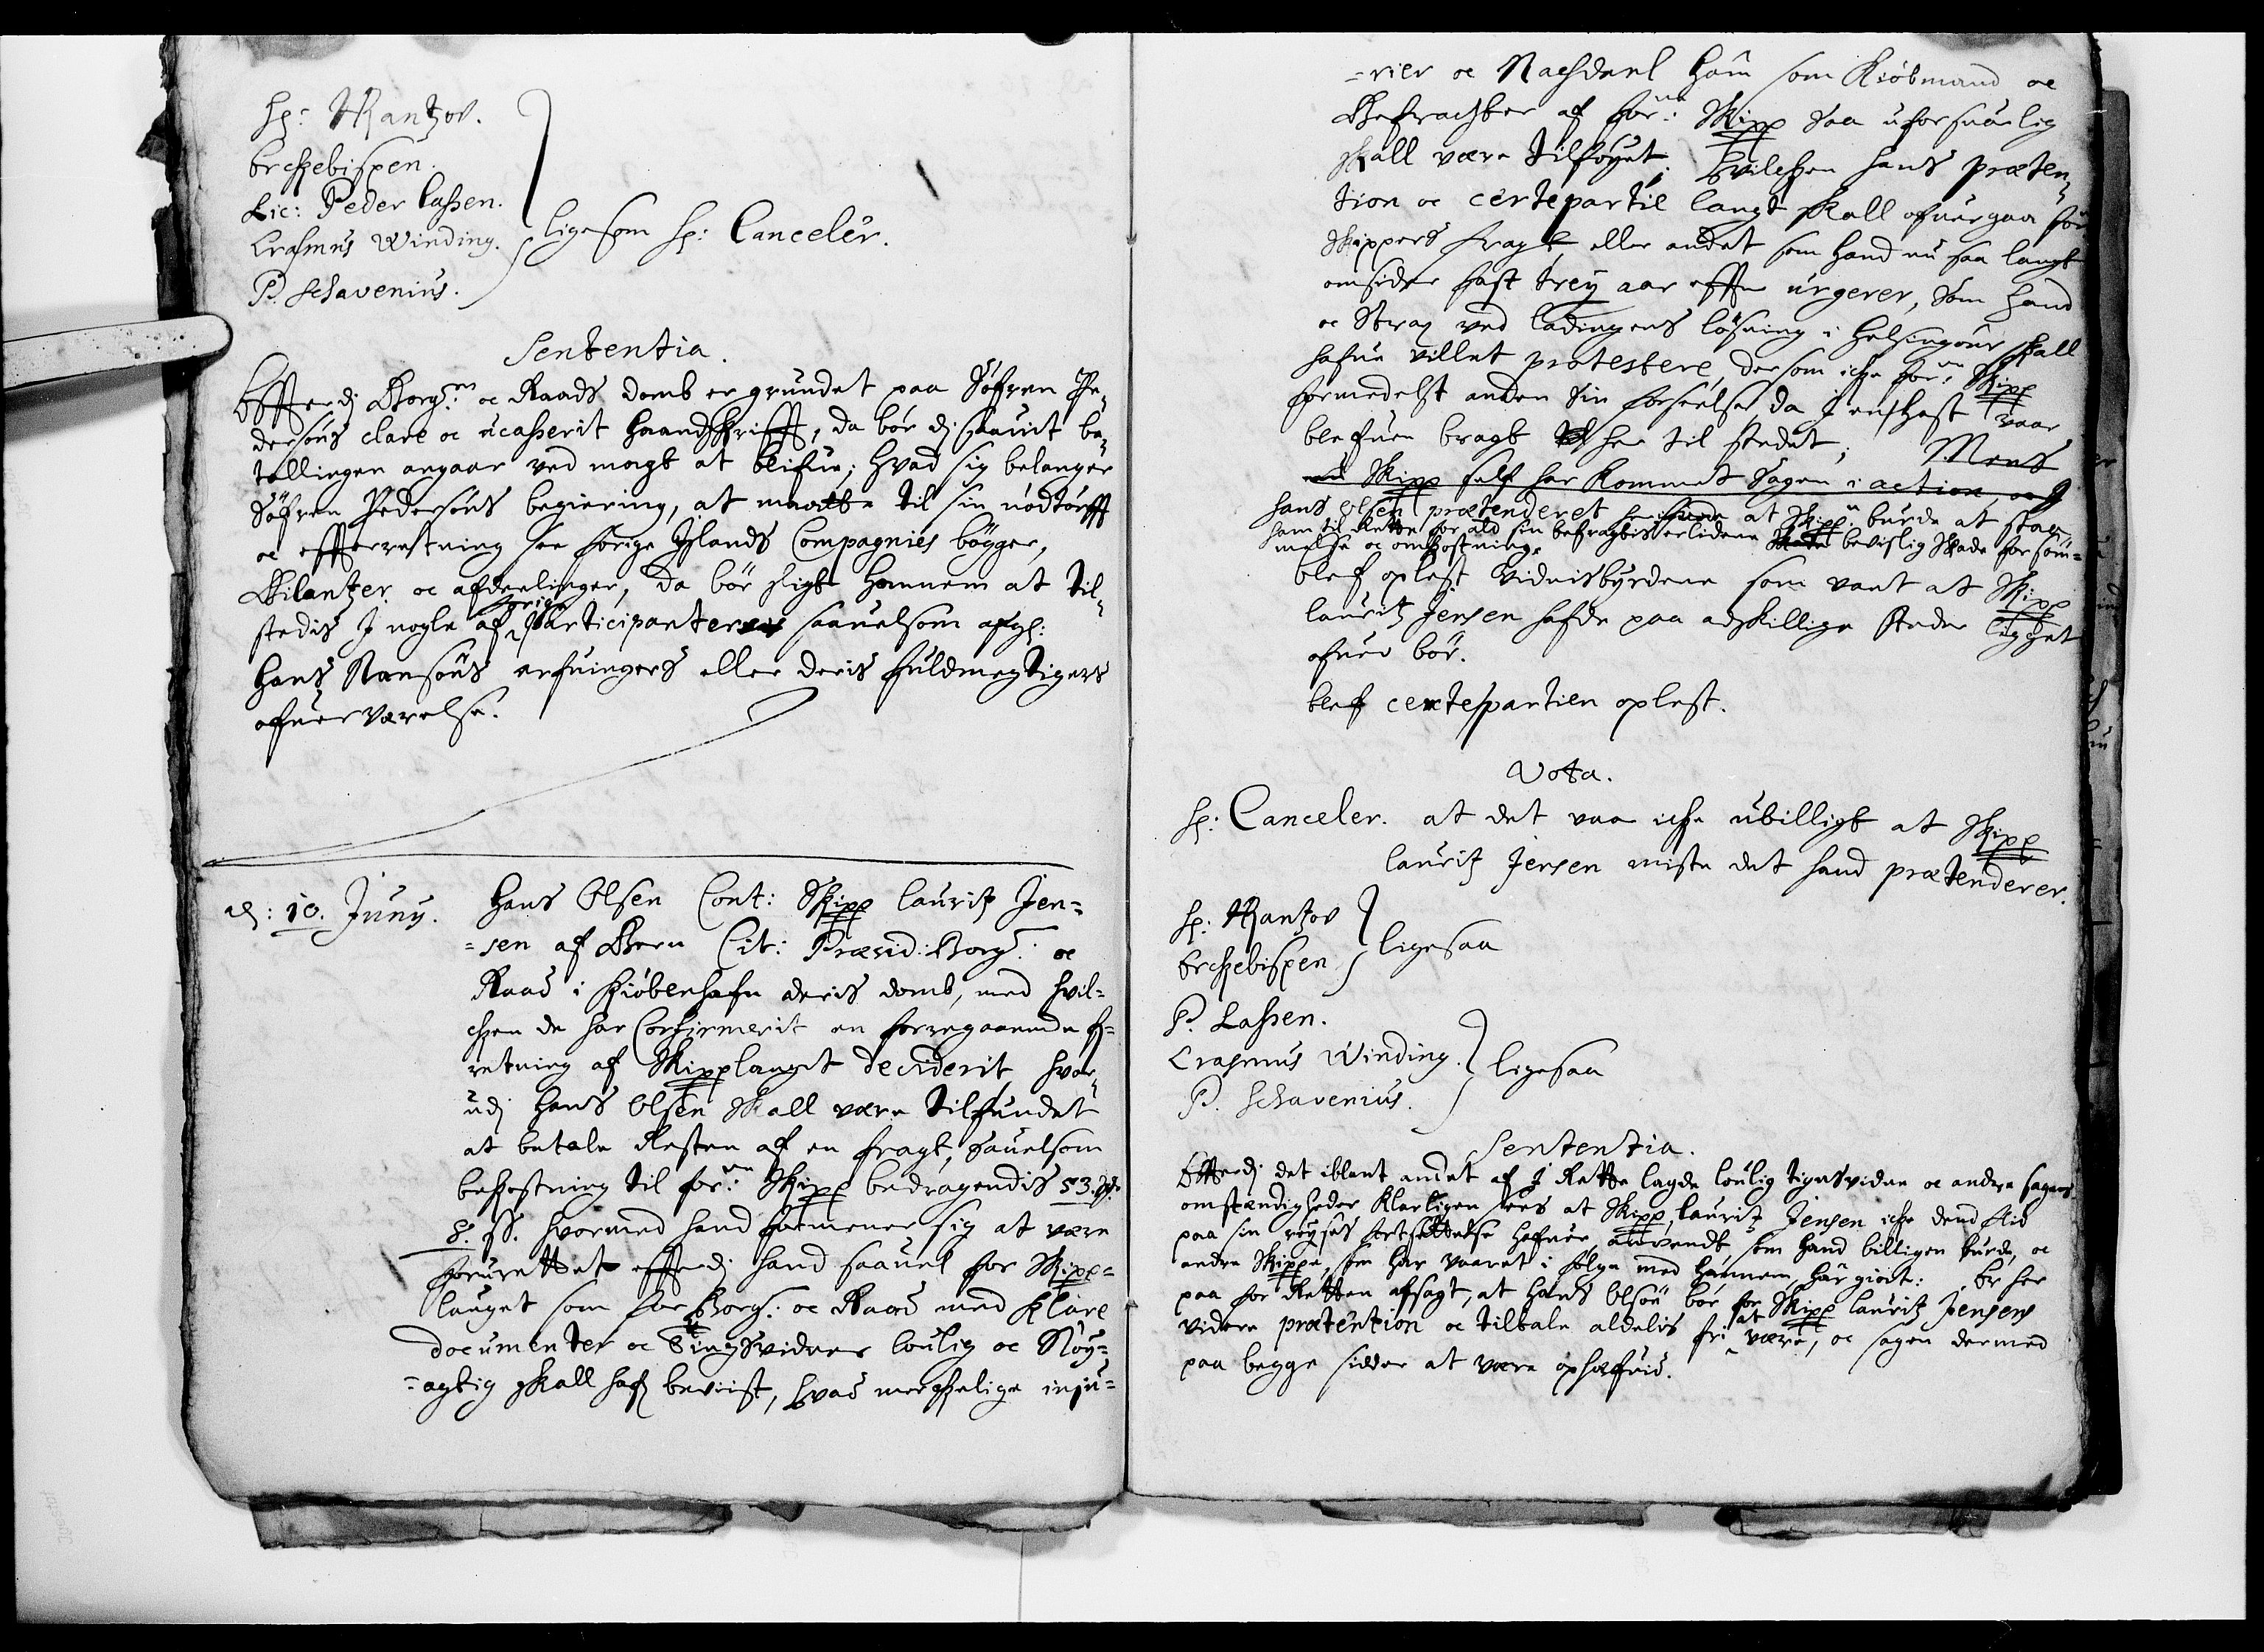 H: Rantzov.
Erchebispen.
Lic: Peder Lassen.
Erasmus Winding.
P. Schavenius.
ligesom H: Canceler.
Sententia.
Effterdj Borg:m oc Raads domb er grundet paa Söfren Pe„
dersöns clare oc ucasserit Haandskrifft, da bör dj saauit be„
tallingen angaar ved magt at blifue; hvad sig belanger
Söfren Pedersöns begiering, at maatte til sin nödtörfft
oc effterretning see forige Islands Compagnies böyger,
Bilantzer oc afdeelinger, da bör sligt hannem at til„
stedis J nogle af forige Participanter saauelsom afg:
Hans Nansöns arfuingers eller deris fuldmegtigers
ofuerværelse.
d: 10. Junij.
Hans Olsen Cont: Skipp Lauritz Jen=
=sen af Bern Cit: Præsid: Borg: oc
Raad i Kiöbenhafn deris domb, med hvil=
chen de har Confirmerit en forregaaende f=
retning af Skipplauget deciderit, hvor„
udj Hans Olsen skall være tilfundet
at betale Resten af en fragt, saauelsom
bekostning til for:ne Skipp bedragendis 53. Rd:
8. ss. hvormed hand formener sig at være
forurettet effterdj hand saauel for Skipp=
lauget som for Borg: oc Raad med klare
documenter oc Tingsvidner loulig oc Nöy=
=agtig skall hafe beviist, hvad merchelige inju=
=rier oc Nachdeel ham som Kiöbmand oc
Befrachter af for:ne Skipp saa uforsuarlig
skall være tilföyet; hvilchen hans præten„
tion oc certepartie langt skall ofuergaa for
Skippers fragt eller andet som hand nu saa langt
omsider fast trey aar effter urgerer, som hand
oc strax ved ladingens lösning i Helsingöer skall
hafue villet protestere, dersom iche for:ne Skipp
formedelst anden sin forseelse, da J en hast vaar
blefuen bragt her til stedet; Mens
nu Skipp self har kommet sagen i action, oc
Hans Olsen prætenderet at Skipp burde at staa
ham til Rette for ald sin befragtis erlidene bevislig skade forsöm=
melse oc omkostning.
blef oplest vidnisbyrdene som vant at Skipp
Lauritz Jensen hafde paa adskillige steder ligget
ofuer bör.
blef certepartien oplest.
Vota.
H: Canceler. at det var iche ubilligt at Skipp
Lauritz Jensen miste det hand prætenderer.
H: Rantzov
Erchebispen
ligesaa
P. Lassen.
Erasmus Winding.
P. Schavenius.
ligesaa
Sententia.
Effterdj det iblant andet af J Rette lagde loulig tingsvidne oc andre sagens
omstændigheder klarligen sees at Skipp Lauritz Jensen iche dend flid
paa sin reyses fortsettelse hafuer anvendt, som hand billigen burde, oc
andre Skippere, som har vaaret i fölge med hannem har giort: Er her
paa for Retten afsagt, at Hans Olsön bör for Skipp Lauritz Jensens
videre prætention oc tiltale aldelis fri at være, oc sagen dermed
paa begge sidder at være ophæfuid.